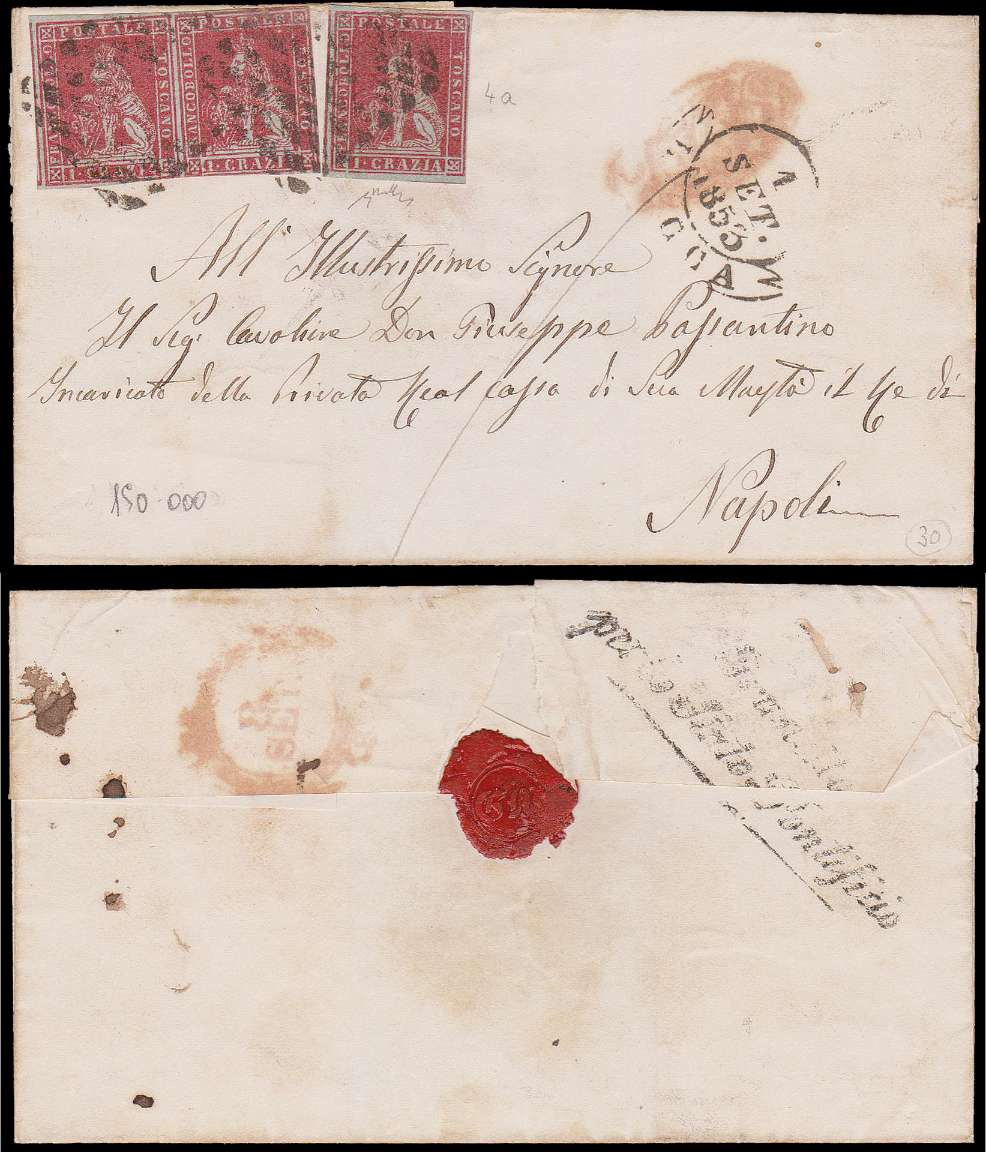 FRANCOBOLLO POSTALE TOSCANO 1 CRAZIA
FRANCOBOLLO POSTALE TOSCANO 1 CRAZIA
FRANCOBOLLO POSTALE TOSCANO 1 CRAZIA
4a
1
SET.
1853
All' Illustrissimo Signore
Il Sig: Cavaliere Don Giuseppe Passantino
Incaricato della Privata Real Cassa di Sua Maestà il Re di
Napoli
150.000
30
SET.
per lo Stato Pontificio